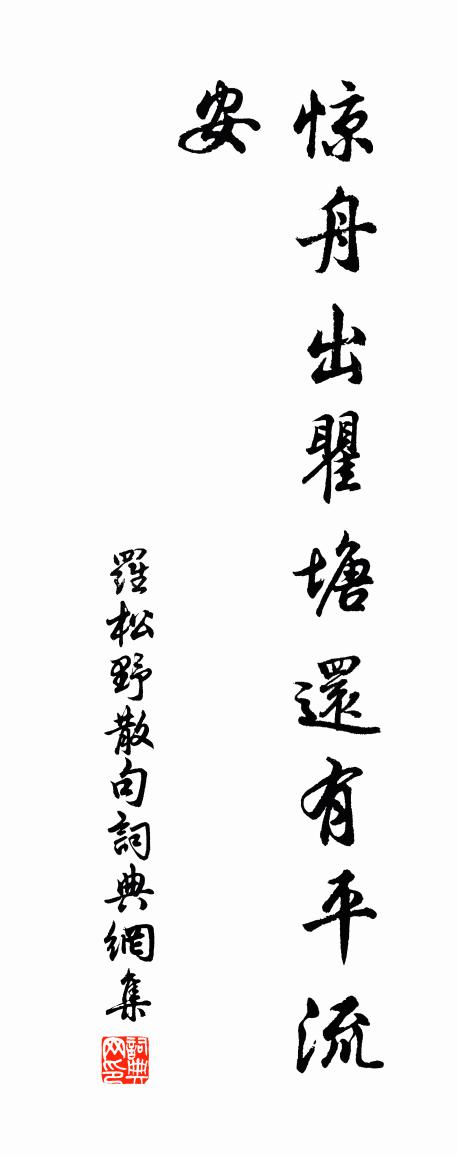 惊舟出瞿塘還有平流
安
羅松野散句詞典網集
詞典网印